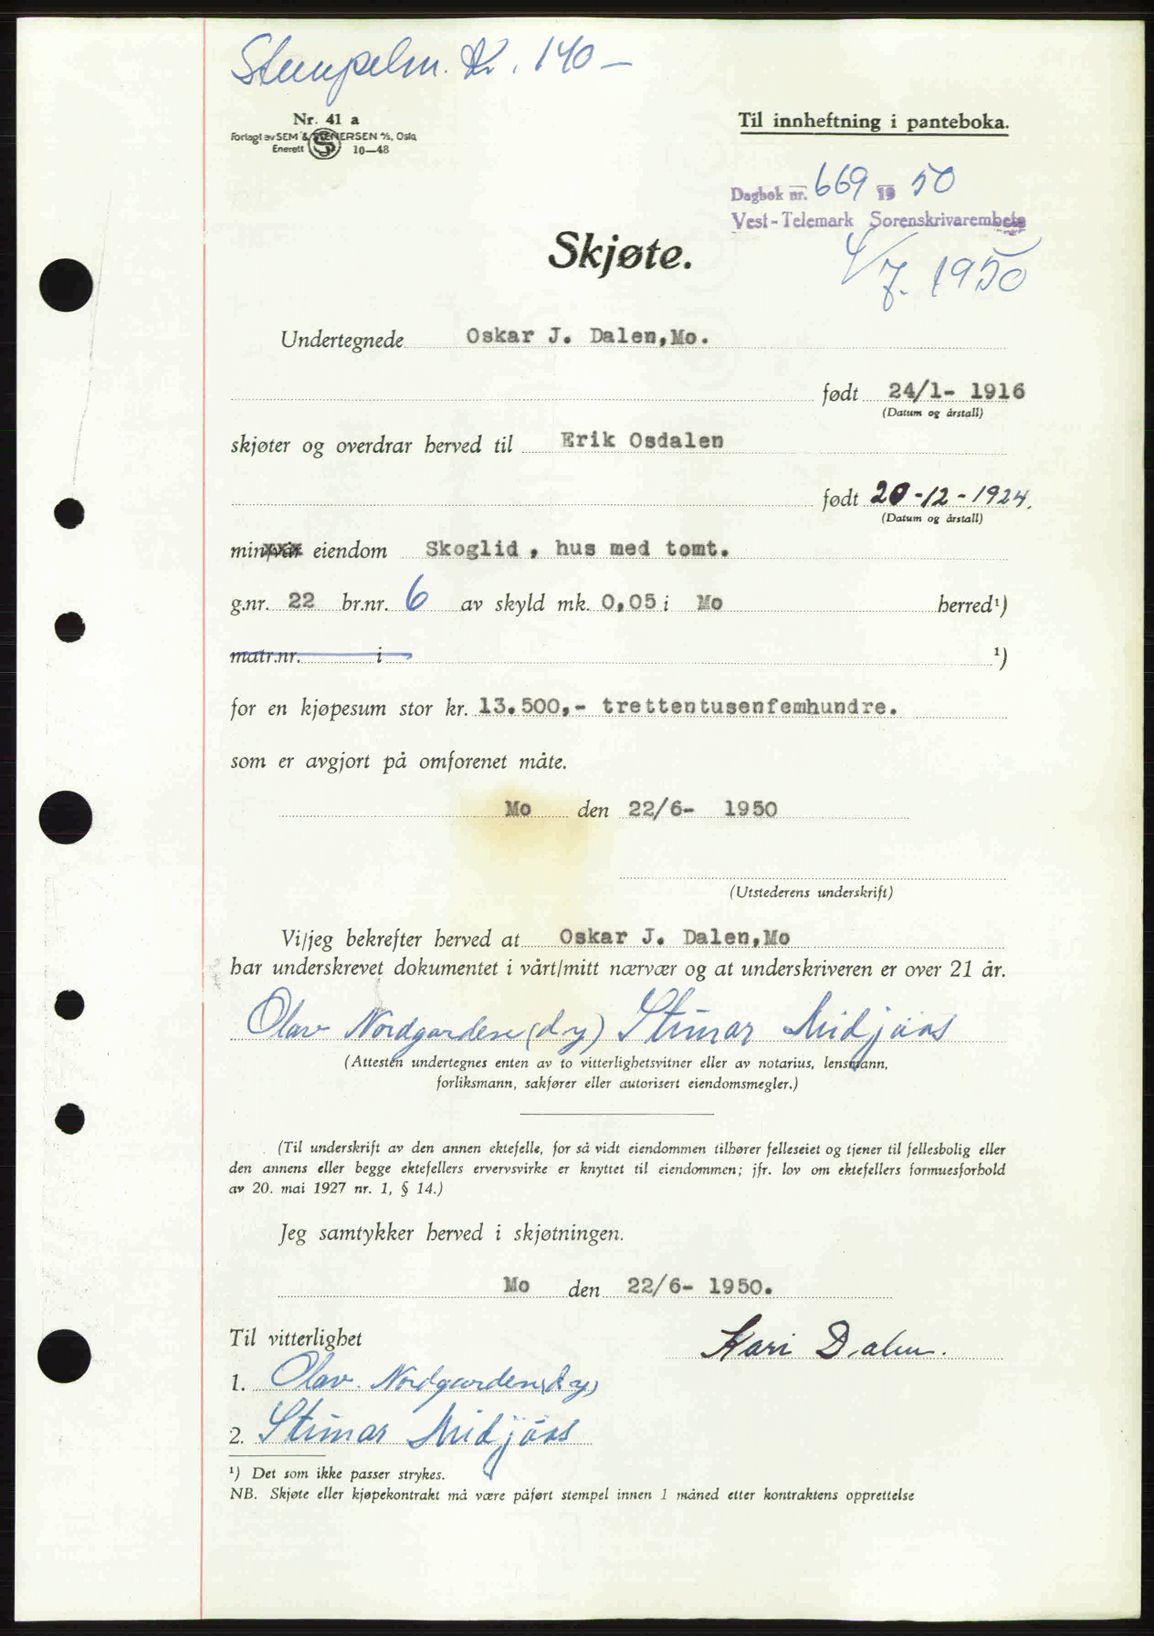 Stempelm. Kr. 140 –
Nr. 41 a
Forlagt av SEM & STENERSEN A/S, Oslo
Enerett 10—48
Til innheftning i panteboka.
Dagbok nr. 669 19 50
Vest-Telemark Sorenskrivarembete
4/7. 1950
Skjøte.
Undertegnede Oskar J. Dalen, Mo.
født 24/1- 1916
(Datum og årstall)
skjøter og overdrar herved til Erik Osdalen
født 20-12-1924.
(Datum og årstall)
min/vår eiendom Skoglid , hus med tomt.
g.nr. 22 br.nr. 6 av skyld mk. 0,05 i Mo herred¹)
matr.nr. i ¹)
for en kjøpesum stor kr. 13.500,- trettentusenfemhundre.
som er avgjort på omforenet måte.
Mo den 22/6- 1950
(Utstederens underskrift)
Vi/jeg bekrefter herved at Oskar J. Dalen, Mo
har underskrevet dokumentet i vårt/mitt nærvær og at underskriveren er over 21 år.
Olav Nordgarden (d.y) Steinar Midjåas
(Attesten undertegnes enten av to vitterlighetsvitner eller av notarius, lensmann,
forliksmann, sakfører eller autorisert eiendomsmegler.)
(Til underskrift av den annen ektefelle, for så vidt eiendommen tilhører felleseiet og tjener til fellesbolig eller
den annens eller begge ektefellers ervervsvirke er knyttet til eiendommen; jfr. lov om ektefellers formuesforhold
av 20. mai 1927 nr. 1, § 14.)
Jeg samtykker herved i skjøtningen.
Mo den 22/6- 1950.
Til vitterlighet
Kari Dalen.
1. Olav Nordgarden (d.y)
2. Steinar Midjåas
¹) Det som ikke passer strykes.
NB. Skjøte eller kjøpekontrakt må være påført stempel innen 1 måned etter kontraktens opprettelse